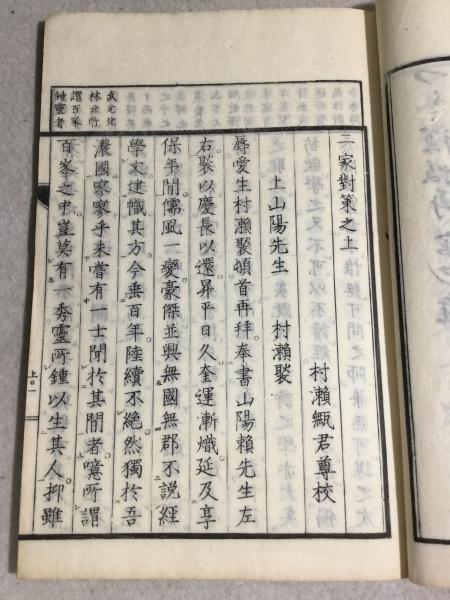 二家對策之上
村瀬㼆君尊校
上山陽先生　村瀬褧
辱愛生村瀬褧頓首再拜奉書山陽賴先生左
右褧以慶長以還昇平日久奎運漸熾延及享
保年間儒風一變豪傑並興無國無郡不説經
學文建幟其方今垂百年陸續不絶然獨於吾
濃國寥寥乎未嘗有一士聞於其間者噫所謂
百峯之中豈莫有一秀靈所鍾以生其人抑雖
武元北
林所
謂百峯
鍾靈者
上〇一